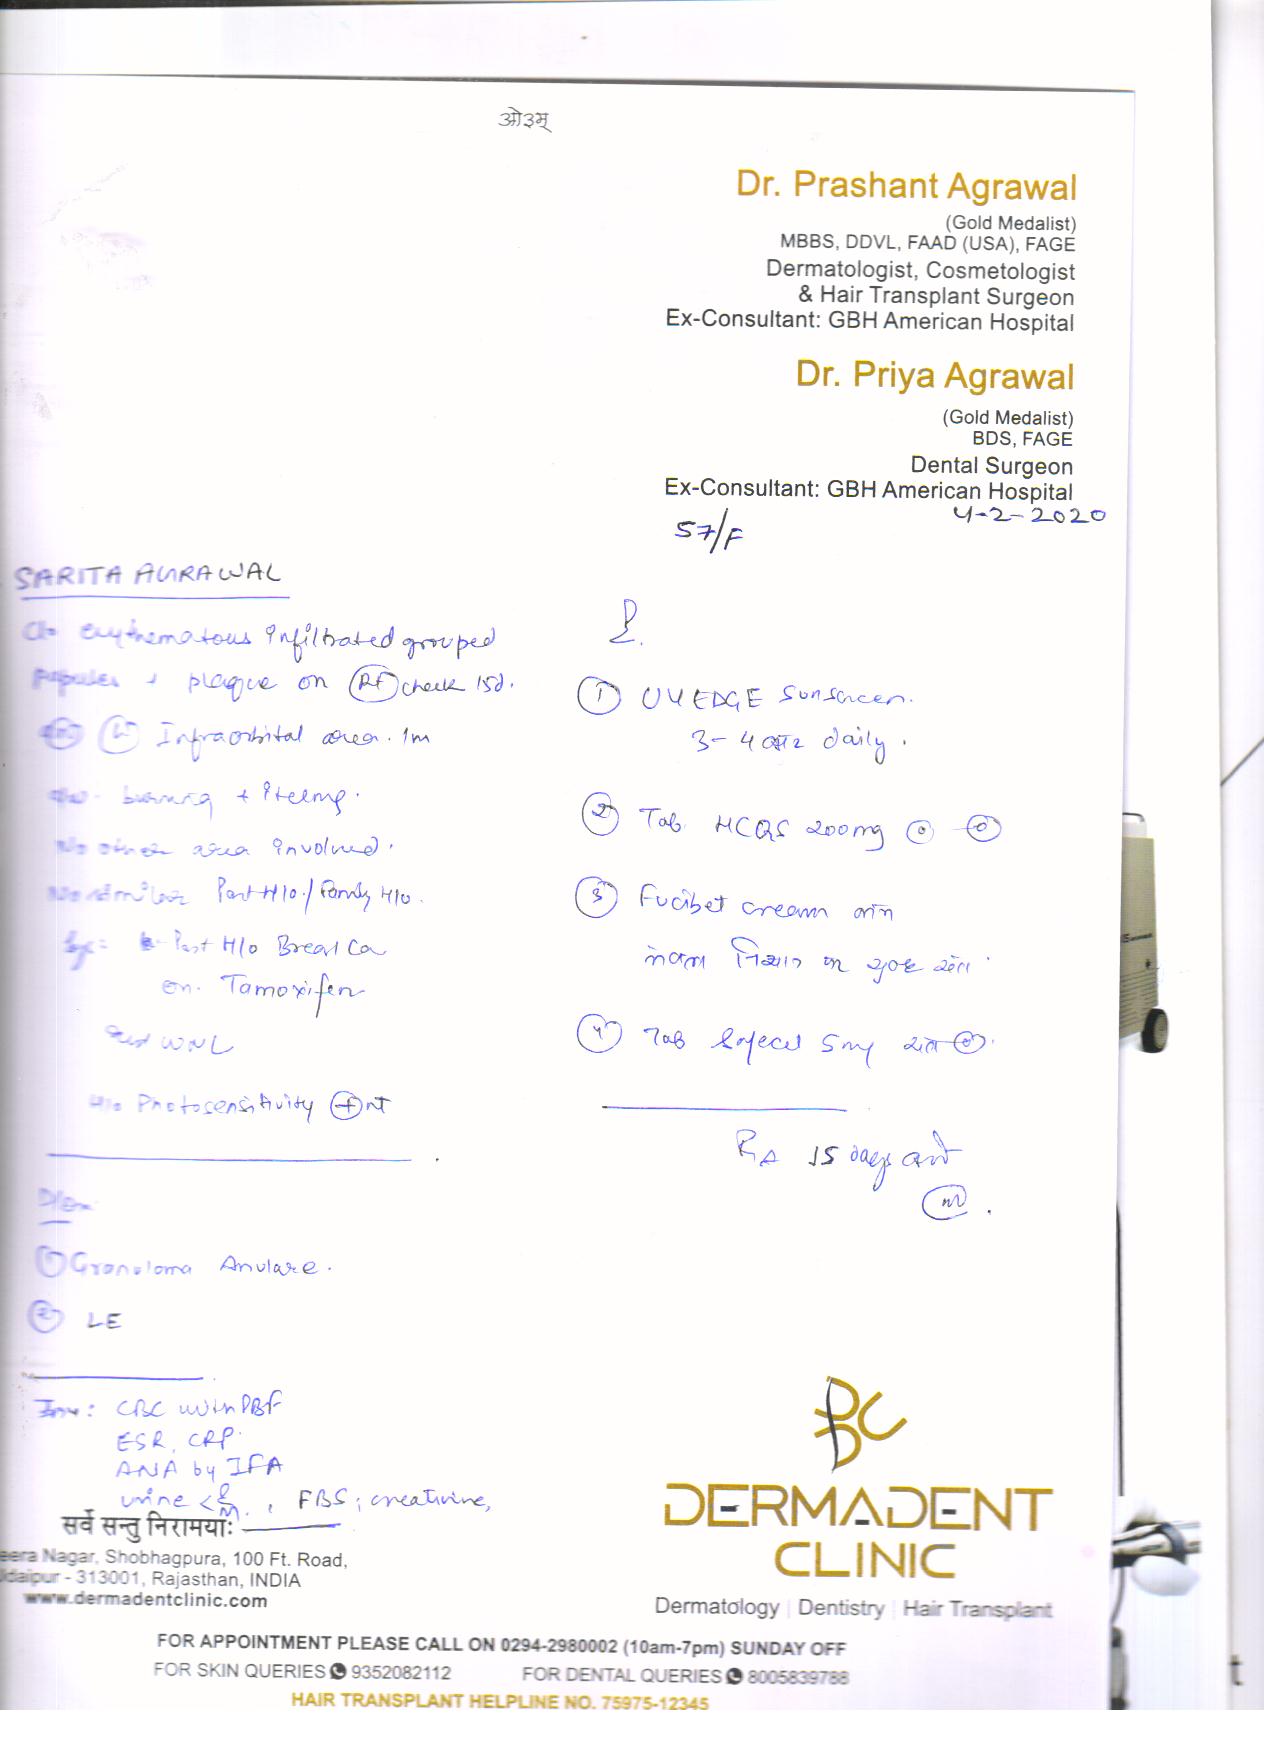 ओ३म्
Dr. Prashant Agrawal
(Gold Medalist)
MBBS, DDVL, FAAD (USA), FAGE
Dermatologist, Cosmetologist
& Hair Transplant Surgeon
Ex-Consultant: GBH American Hospital
Dr. Priya Agrawal
(Gold Medalist)
BDS, FAGE
Dental Surgeon
Ex-Consultant: GBH American Hospital
4-2-2020
57/F
SARITA AGRAWAL
C/o erythematous infiltrated grouped
papules + plaque on Rt cheek 15d.
Lt Infraorbital area. 1m
burning + itching.
No other area involved.
No similar Past H/o / Family H/o.
Past H/o Breast Ca
on. Tamoxifen
WNL
H/o Photosensitivity +nt
① Granuloma Anulare.
② LE
Inv: CBC with PBF
ESR, CRP.
ANA by IFA
urine R/M, FBS; creatinine,
① UVEDGE Sunscreen.
3-4 बार daily.
② Tab HCQS 200mg
③ Fucibet cream
④ Tab 5mg
15 days
सर्वे सन्तु निरामयाः
eera Nagar, Shobhagpura, 100 Ft. Road,
daipur - 313001, Rajasthan, INDIA
www.dermadentclinic.com
DERMADENT
CLINIC
Dermatology | Dentistry | Hair Transplant
FOR APPOINTMENT PLEASE CALL ON 0294-2980002 (10am-7pm) SUNDAY OFF
FOR SKIN QUERIES 9352082112 FOR DENTAL QUERIES 8005839788
HAIR TRANSPLANT HELPLINE NO. 75975-12345